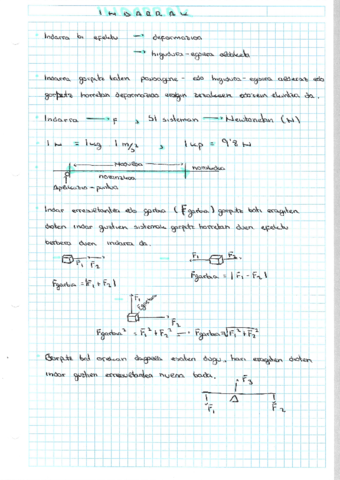 INDARRAK
Indarra bi efektu → deformazioa
→ higidura-egoera aldaketa
Indarra gorputz baten pausagune- edo higidura-egoera aldatzeko edo
gorputz horretan deformazioa eragin dezakeen edozein ekintza da.
Indarra → F , SI sisteman → Newtonetan (N)
1 N = 1 kg 1 m/s² , 1 kp = 9'8 N
Modulua
norabidea
noranzkoa
Aplikazio-puntua
Indar erresultantea edo garbia (F garbia) gorputz bati eragiten
dioten indar guztien sistemak gorputz horretan duen efektu
berbera duen indarra da.
F1 F2
F1 F2
Fgarbia = |F1 + F2|
Fgarbia = |F1 - F2|
F1
Fgarbia
F2
Fgarbia² = F1² + F2² → Fgarbia = √F1² + F2²
Gorputz bat orekan dagoela esaten dugu, hari eragiten dioten
indar guztien erresultantea nulua bada.
F3
F1
F2